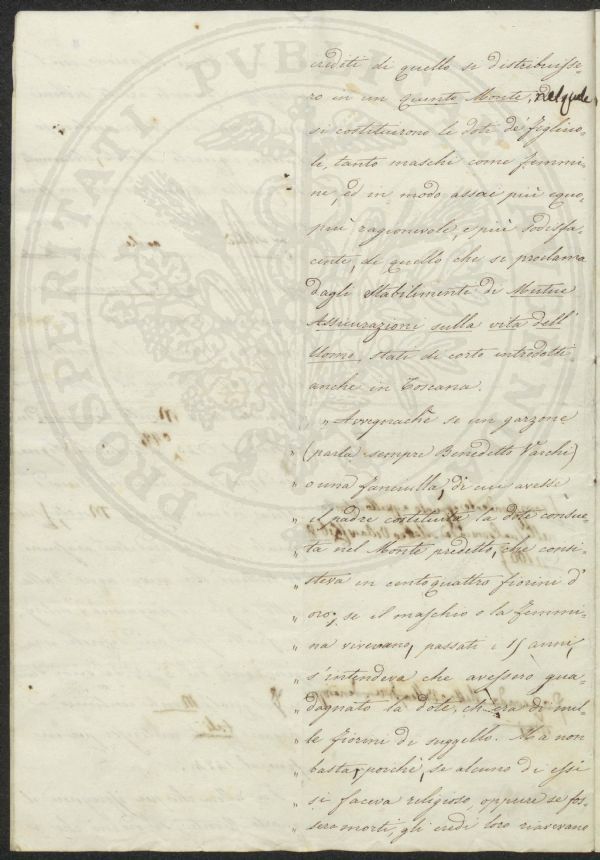 crediti di quello si distribuisse-
ro in un Quinto Monte, nel quale
si costituirono le doti de' figliuo-
li, tanto maschi come femmi-
ne, ed in modo assai più equo,
più ragionevole, e più sodisfa-
cente, di quello che si proclama
dagli Stabilimenti di Mutue
Assicurazioni sulla vita dell'
Uomo, stati di corto introdotti
anche in Toscana.
" Avvegnachè se un garzone
" (parla sempre Benedetto Varchi)
" o una fanciulla, di cui avesse
" il padre costituita la dote consue-
" ta nel Monte predetto, che consi-
" steva in centoquattro fiorini d'
" oro; se il maschio o la femmi-
" na vivevano, passati i 15 anni,
" s'intendeva che avessero gua-
" dagnato la dote, ch'era di mil-
" le fiorini di suggello. Ma non
" basta, poichè, se alcuno di essi
" si faceva religioso, oppure se fos-
" sero morti, gli eredi loro riavevano
PROSPERITATI PVBLICAE